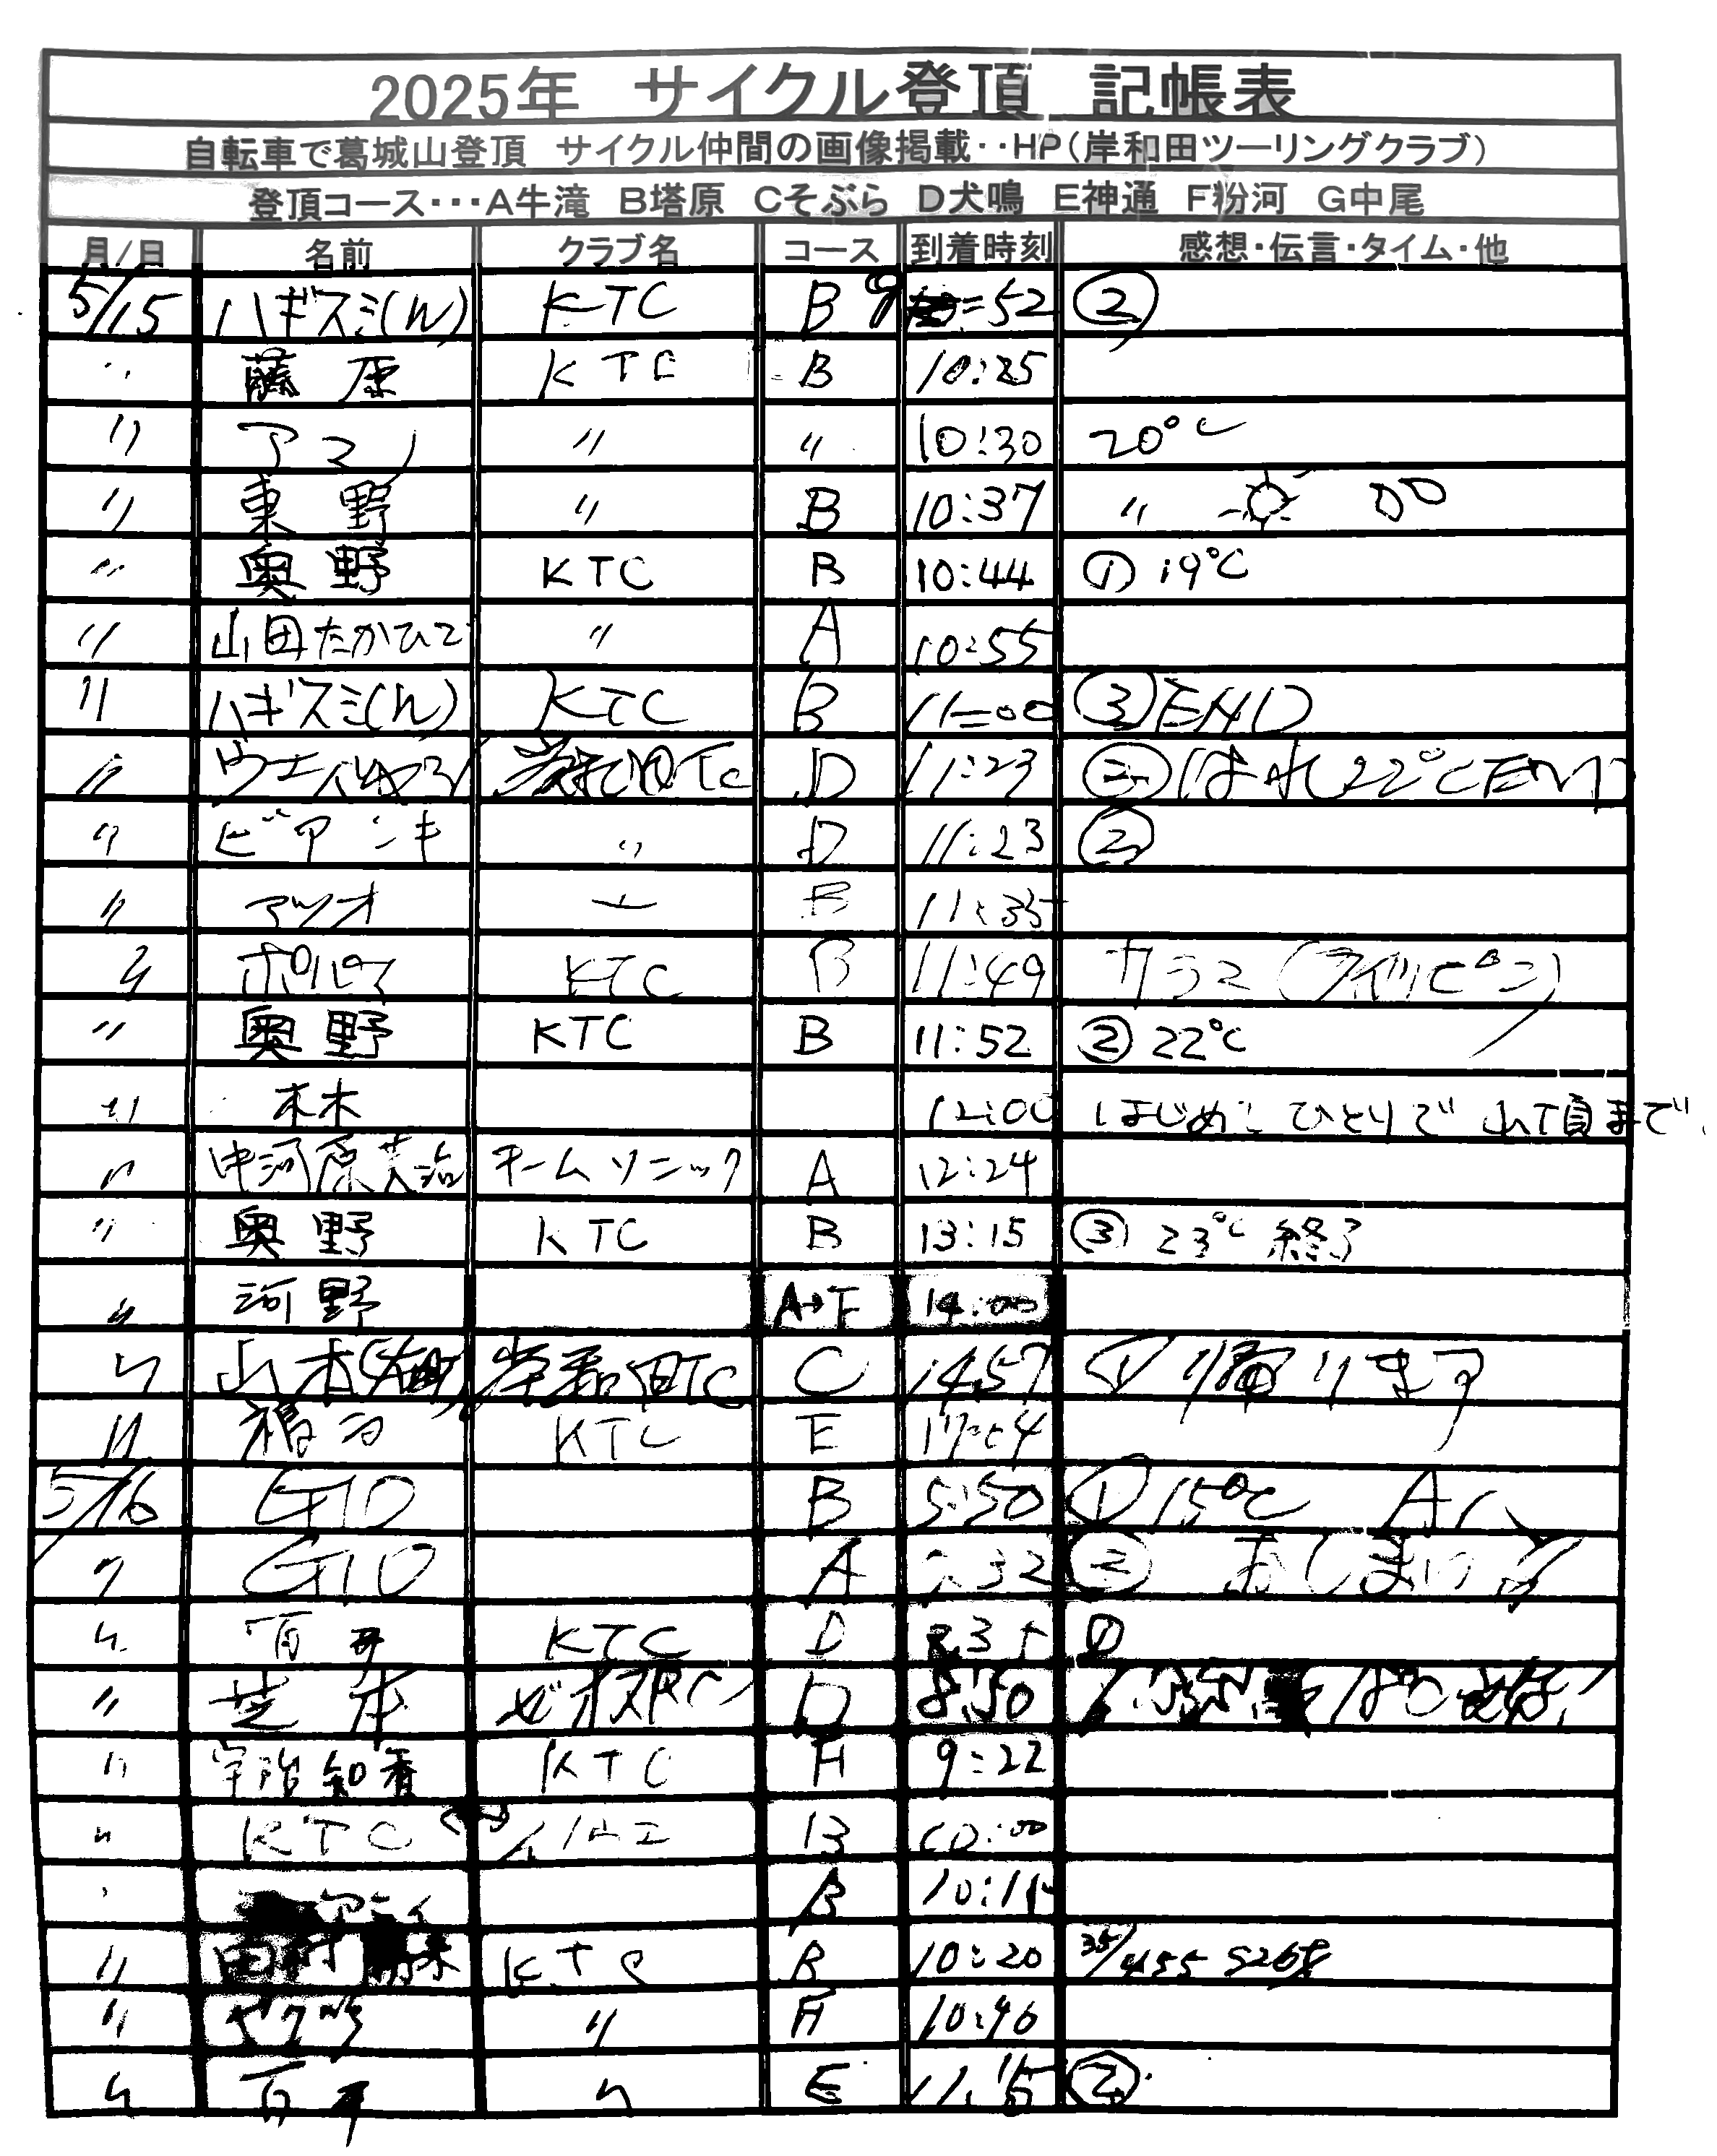 2025年 サイクル登頂 記帳表
自転車で葛城山登頂 サイクル仲間の画像掲載‥HP(岸和田ツーリングクラブ)
登頂コース･･･A牛滝 B塔原 Cそぶら D犬鳴 E神通 F粉河 G中尾
月/日 名前 クラブ名 コース 到着時刻 感想・伝言・タイム・他
5/15 ハギスミ(ん) KTC B 9:52 ②
〃 藤原 KTC B 10:25
〃 アマノ 〃 〃 10:30 20℃
〃 東野 〃 B 10:37 〃
〃 奥野 KTC B 10:44 ① 19℃
〃 山田たかひで 〃 A 10:55
〃 ハギスミ(ん) KTC B 11:00 ③END
〃 岸和田TC D 11:23 ②はれ22℃
〃 ビアンキ 〃 D 11:23 ②
〃 アツオ ー B 11:35
〃 KTC B 11:49
〃 奥野 KTC B 11:52 ② 22℃
〃 林 12:00 はじめて ひとりで 山頂まで
〃 中河原英治 チームソニック A 12:24
〃 奥野 KTC B 13:15 ③ 23℃ 終了
〃 河野 A→F 14:00
〃 山本 岸和田TC C 14:57 ① 帰ります
〃 KTC E 17:54
5/16 GIO B 5:50 ① 15℃
〃 GIO A 7:32 ② おしまい
〃 百井 KTC D 8:35 ①
〃 芝本 D 8:50
〃 宇治知香 KTC A 9:22
〃 KTC B 10:00
B 10:11
〃 田村 KTC B 10:20 35/455 526
〃 〃 A 10:46
〃 百井 〃 E 11:15 ②